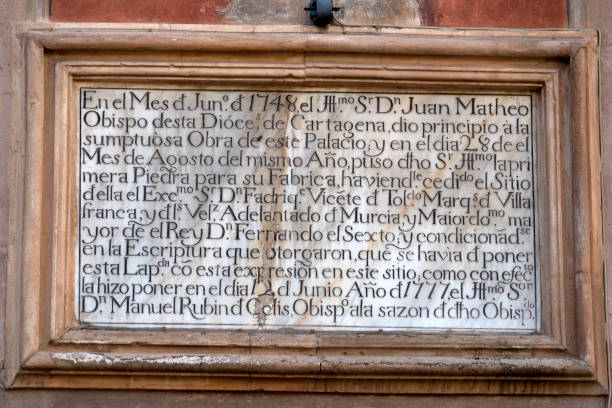 En el Mes đ Jun.º đ 1748, el Jll.mo S.r D.n Juan Matheo
Obispo desta Dióce.s de Cartagena, dio principio à la
sumptuosa Obra de este Palacio, y en el dia 28 de el
Mes de Agosto del mismo Año, puso dho S.r Jll.mo la pri
mera Piedra para su Fabrica, haviend.le cedi.do el Sitio
đ ella el Exc.mo S.r D.n Fadriq.e Vicẽte đ Tol.do Marq.s đ Villa
franca, y đ l.s Vel.z Adelantado đ Murcia y Maiord.mo ma
yor de el Rey D.n Fernando el Sexto, y condicionađ.se
en la Escriptura que otorgaron, que se havia đ poner
esta Lap.da cõ esta expresion en este sitio, como con efec.to
la hizo poner en el dia đ Junio Año đ 1777, el Jll.mo S.r
D.n Manuel Rubin đ Celis, Obisp.o a la sazon đ dho Obisp.do